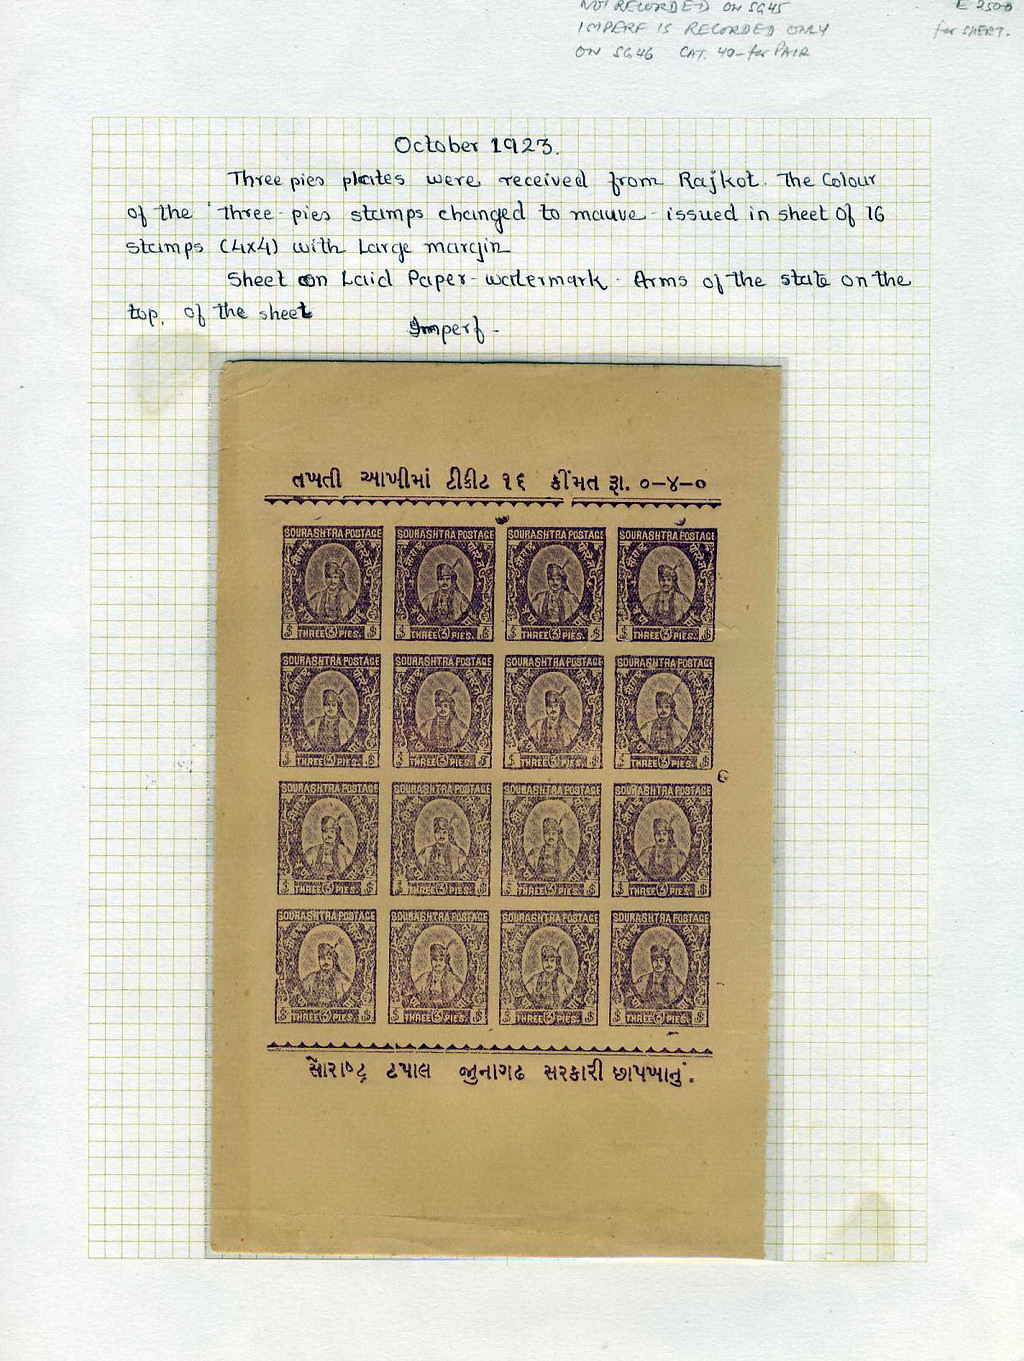 NOT RECORDED ON SG45
IMPERF IS RECORDED ONLY
ON SG46 CAT. 40- for PAIR
£ 2500
for SHEET.
October 1923.
Three pies plates were received from Rajkot. The Colour
of the three-pies stamps changed to mauve - issued in sheet of 16
stamps (4x4) with Large margin
Sheet on Laid Paper - watermark - Arms of the state on the
top. of the sheet
Imperf -
તખતી આખીમાં ટીકીટ ૧૬ કીંમત રૂા. ૦-૪-૦
SOURASHTRA POSTAGE SOURASHTRA POSTAGE SOURASHTRA POSTAGE SOURASHTRA POSTAGE
THREE ૩ PIES. THREE ૩ PIES. THREE ૩ PIES. THREE ૩ PIES.
SOURASHTRA POSTAGE SOURASHTRA POSTAGE SOURASHTRA POSTAGE SOURASHTRA POSTAGE
THREE ૩ PIES. THREE ૩ PIES. THREE ૩ PIES. THREE ૩ PIES.
SOURASHTRA POSTAGE SOURASHTRA POSTAGE SOURASHTRA POSTAGE SOURASHTRA POSTAGE
THREE ૩ PIES. THREE ૩ PIES. THREE ૩ PIES. THREE ૩ PIES.
SOURASHTRA POSTAGE SOURASHTRA POSTAGE SOURASHTRA POSTAGE SOURASHTRA POSTAGE
THREE ૩ PIES. THREE ૩ PIES. THREE ૩ PIES. THREE ૩ PIES.
સૌરાષ્ટ્ર ટપાલ જુનાગઢ સરકારી છાપખાનું.